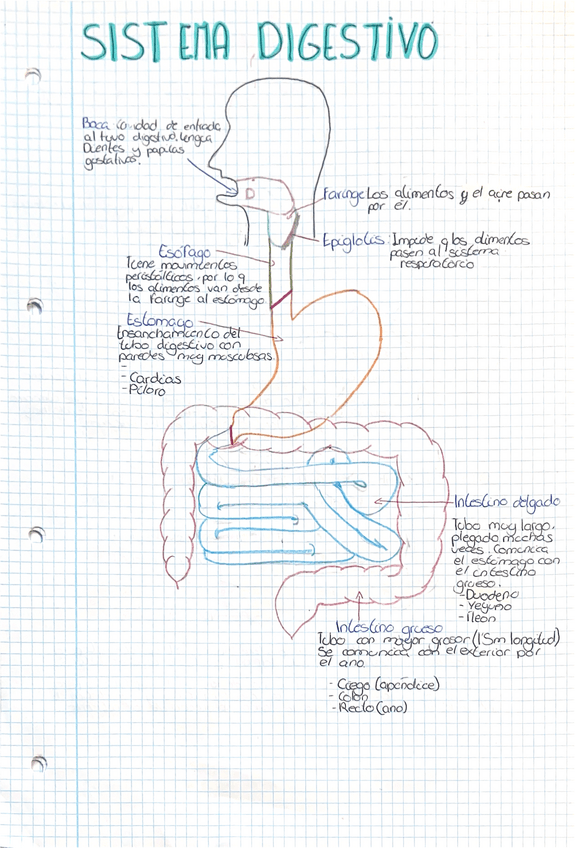 SISTEMA DIGESTIVO
Boca Cavidad de entrada
al tuvo digestivo. Lengua
Dientes y papilas
gustativas.
Faringe Los alimentos y el aire pasan
por él.
Epiglotis: Impide q los alimentos
pasen al sistema
respiratorio
Esófago
Tiene movimientos
peristálticos, por lo q
los alimentos van desde
la Faringe al estómago
Estomago
Ensanchamiento del
tubo digestivo con
paredes muy musculosas
-
- Cardias
- Píloro
Intestino delgado
Tubo muy largo,
plegado muchas
veces. Comunica
el estómago con
el intestino
grueso.
- Duodeno
- Yeyuno
- Íleon
Intestino grueso
Tubo con mayor grosor (1'5m longitud)
Se comunica con el exterior por
el ano.
- Ciego (apéndice)
- Colon
- Recto (ano)